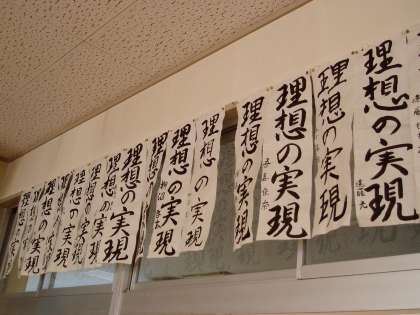 理想の実現
理想の実現
理想の実現
理想の実現
理想の実現
理想の実現
理想の実現
理想の実現
理想の実現
理想の実現
理想の実現
理想の実現
理想の実現